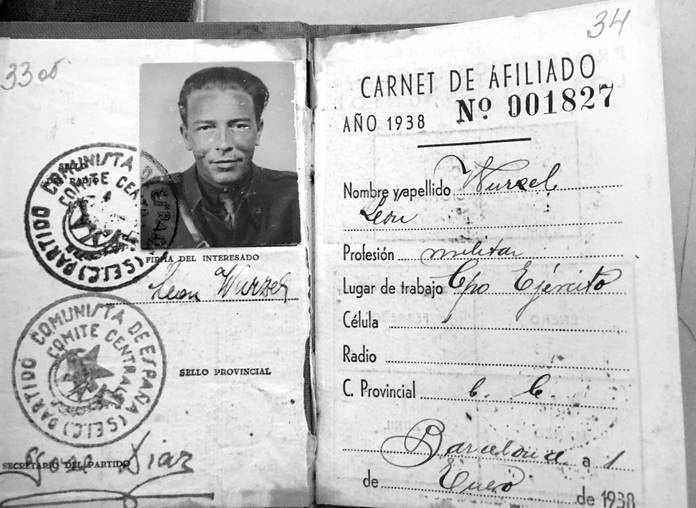 3305
PARTIDO COMUNISTA DE ESPAÑA (S.E.I.C.)
COMITE CENTRAL
FIRMA DEL INTERESADO
Leon Wurzel
SELLO PROVINCIAL
PARTIDO COMUNISTA DE ESPAÑA (S.E.I.C.)
COMITE CENTRAL
SECRETARIO DEL PARTIDO
José Diaz
34
CARNET DE AFILIADO
AÑO 1938 Nº 001827
Nombre y apellido Wurzel
Leon
Profesión militar
Lugar de trabajo Cpo Ejército
Célula
Radio
C. Provincial C. C.
Barcelona a 1
de Enero de 1938